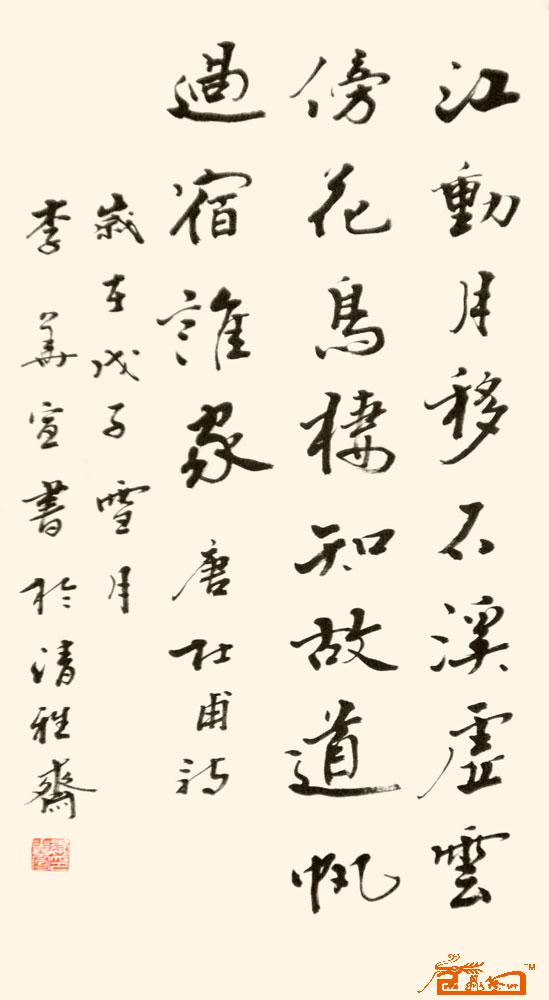 江動月移石溪虛雲
傍花鳥棲知故道帆
過宿誰家 唐杜甫詩
歲在戊子雪月
李華宣書於清雅齋